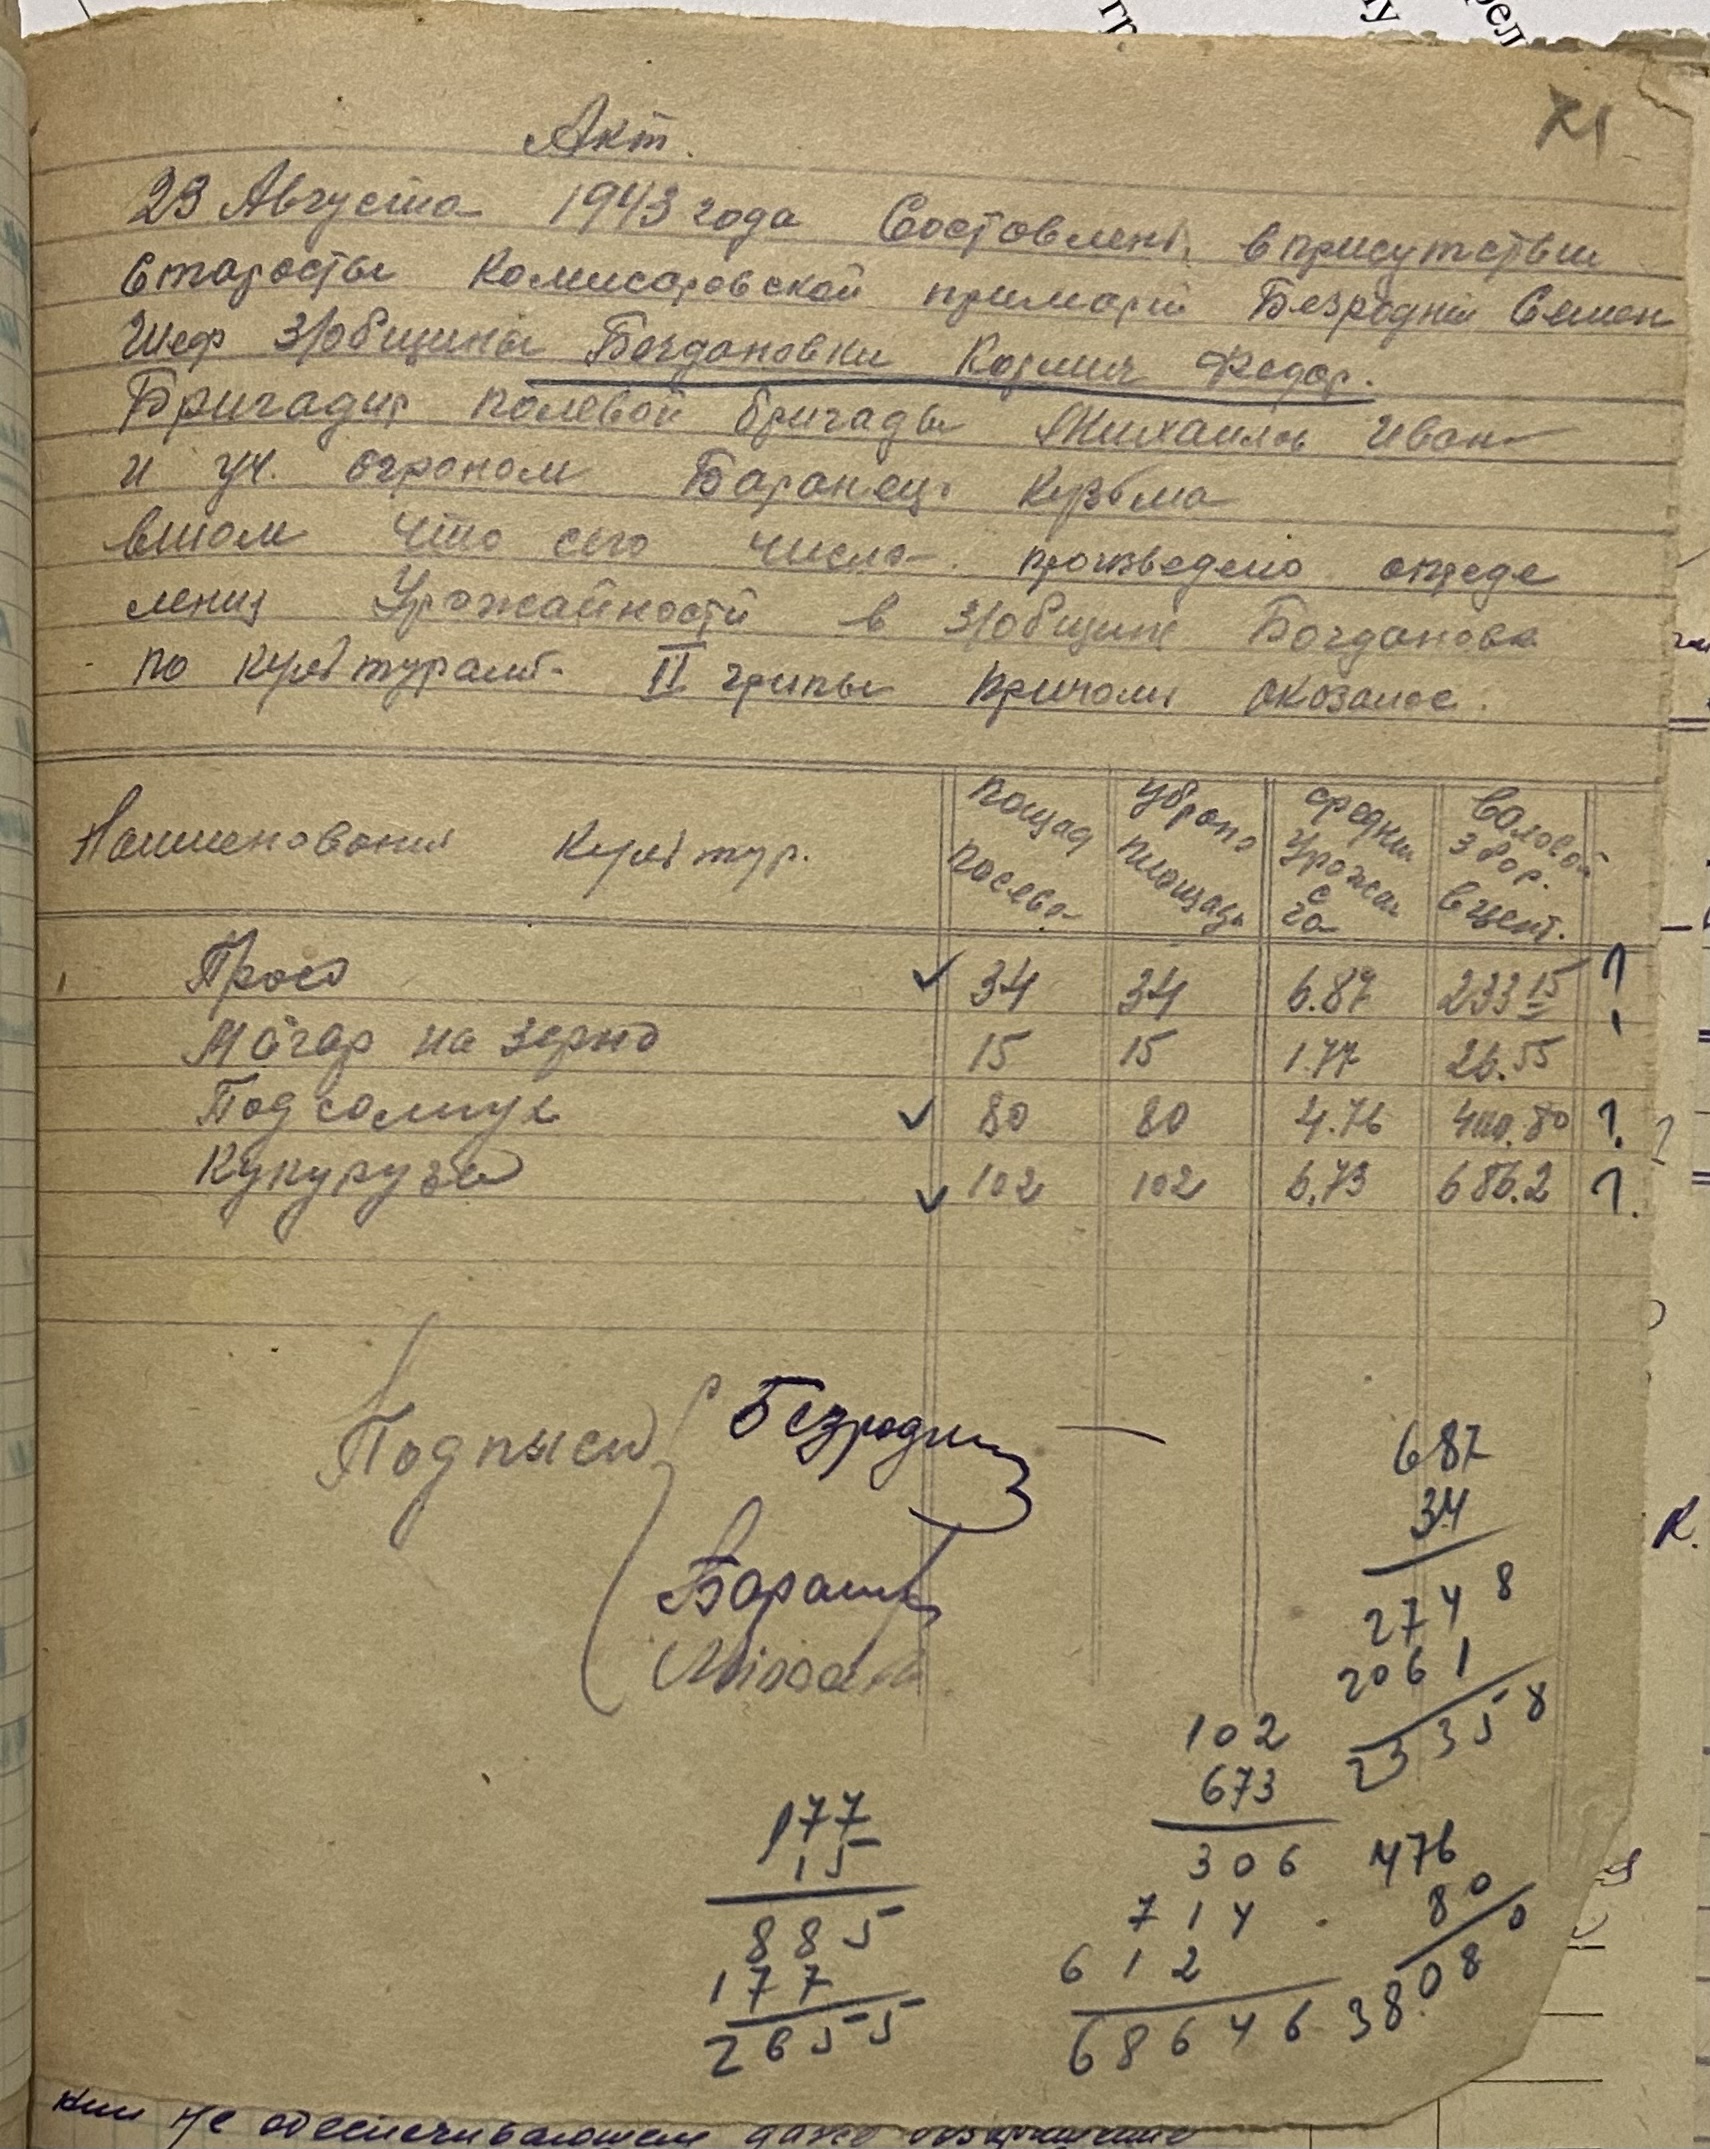 71
Акт.
23 Августа 1943 года Состовлен в присутствии
Старосты Комисаровской примарии Безродний Семен
Шеф З/общины Богдановки Козмин Федор.
Бригадир полевой бригады Михаилов Иван
и уч. огроном Баранец Кузьма
втом что сего числа произведено опреде
ления Урожайности в З/общине Богдановка
по культурам II групы причом оказалос.
Наименования культур.
Пощад посева
Убрано площади
средни урожай с га
Валовой збор. в цент.
Просо 34 34 6.87 233 15 ?
Могар на зерно 15 15 1.77 26.55
Подсолнух 80 80 4.76 400.80 ?
Кукуруза 102 102 6.73 686.2 ?
Подпыси
Безродний
Баранец
687
34
2748
2061
23358
102
673
306
714
612
68646
476
80
38080
177
15
885
177
2655
не обеспечивающем даже